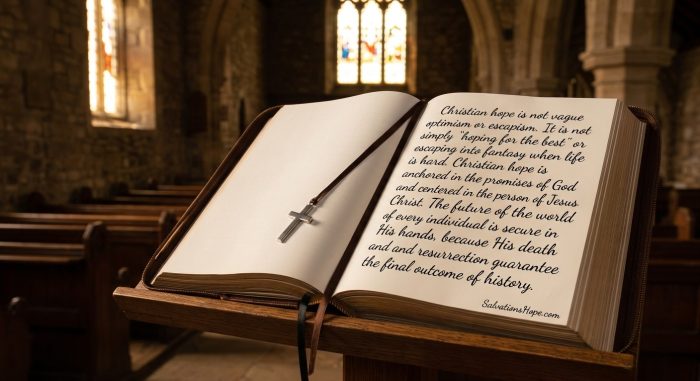 Christian hope is not vague
optimism or escapism. It is not
simply "hoping for the best" or
escaping into fantasy when life
is hard. Christian hope is
anchored in the promises of God
and centered in the person of Jesus
Christ. The future of the world
of every individual is secure in
His hands, because His death
and and resurrection guarantee
the final outcome of history.
SalvationsHope.com